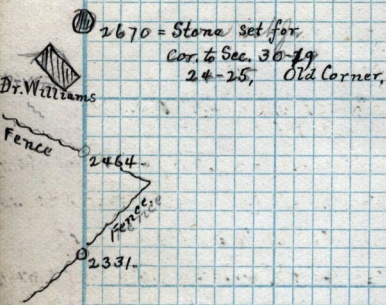 2670 = Stone set for
Cor. to Sec. 30-19
24-25, Old Corner,
Dr. Williams
Fence
2464.
Fence
2331.